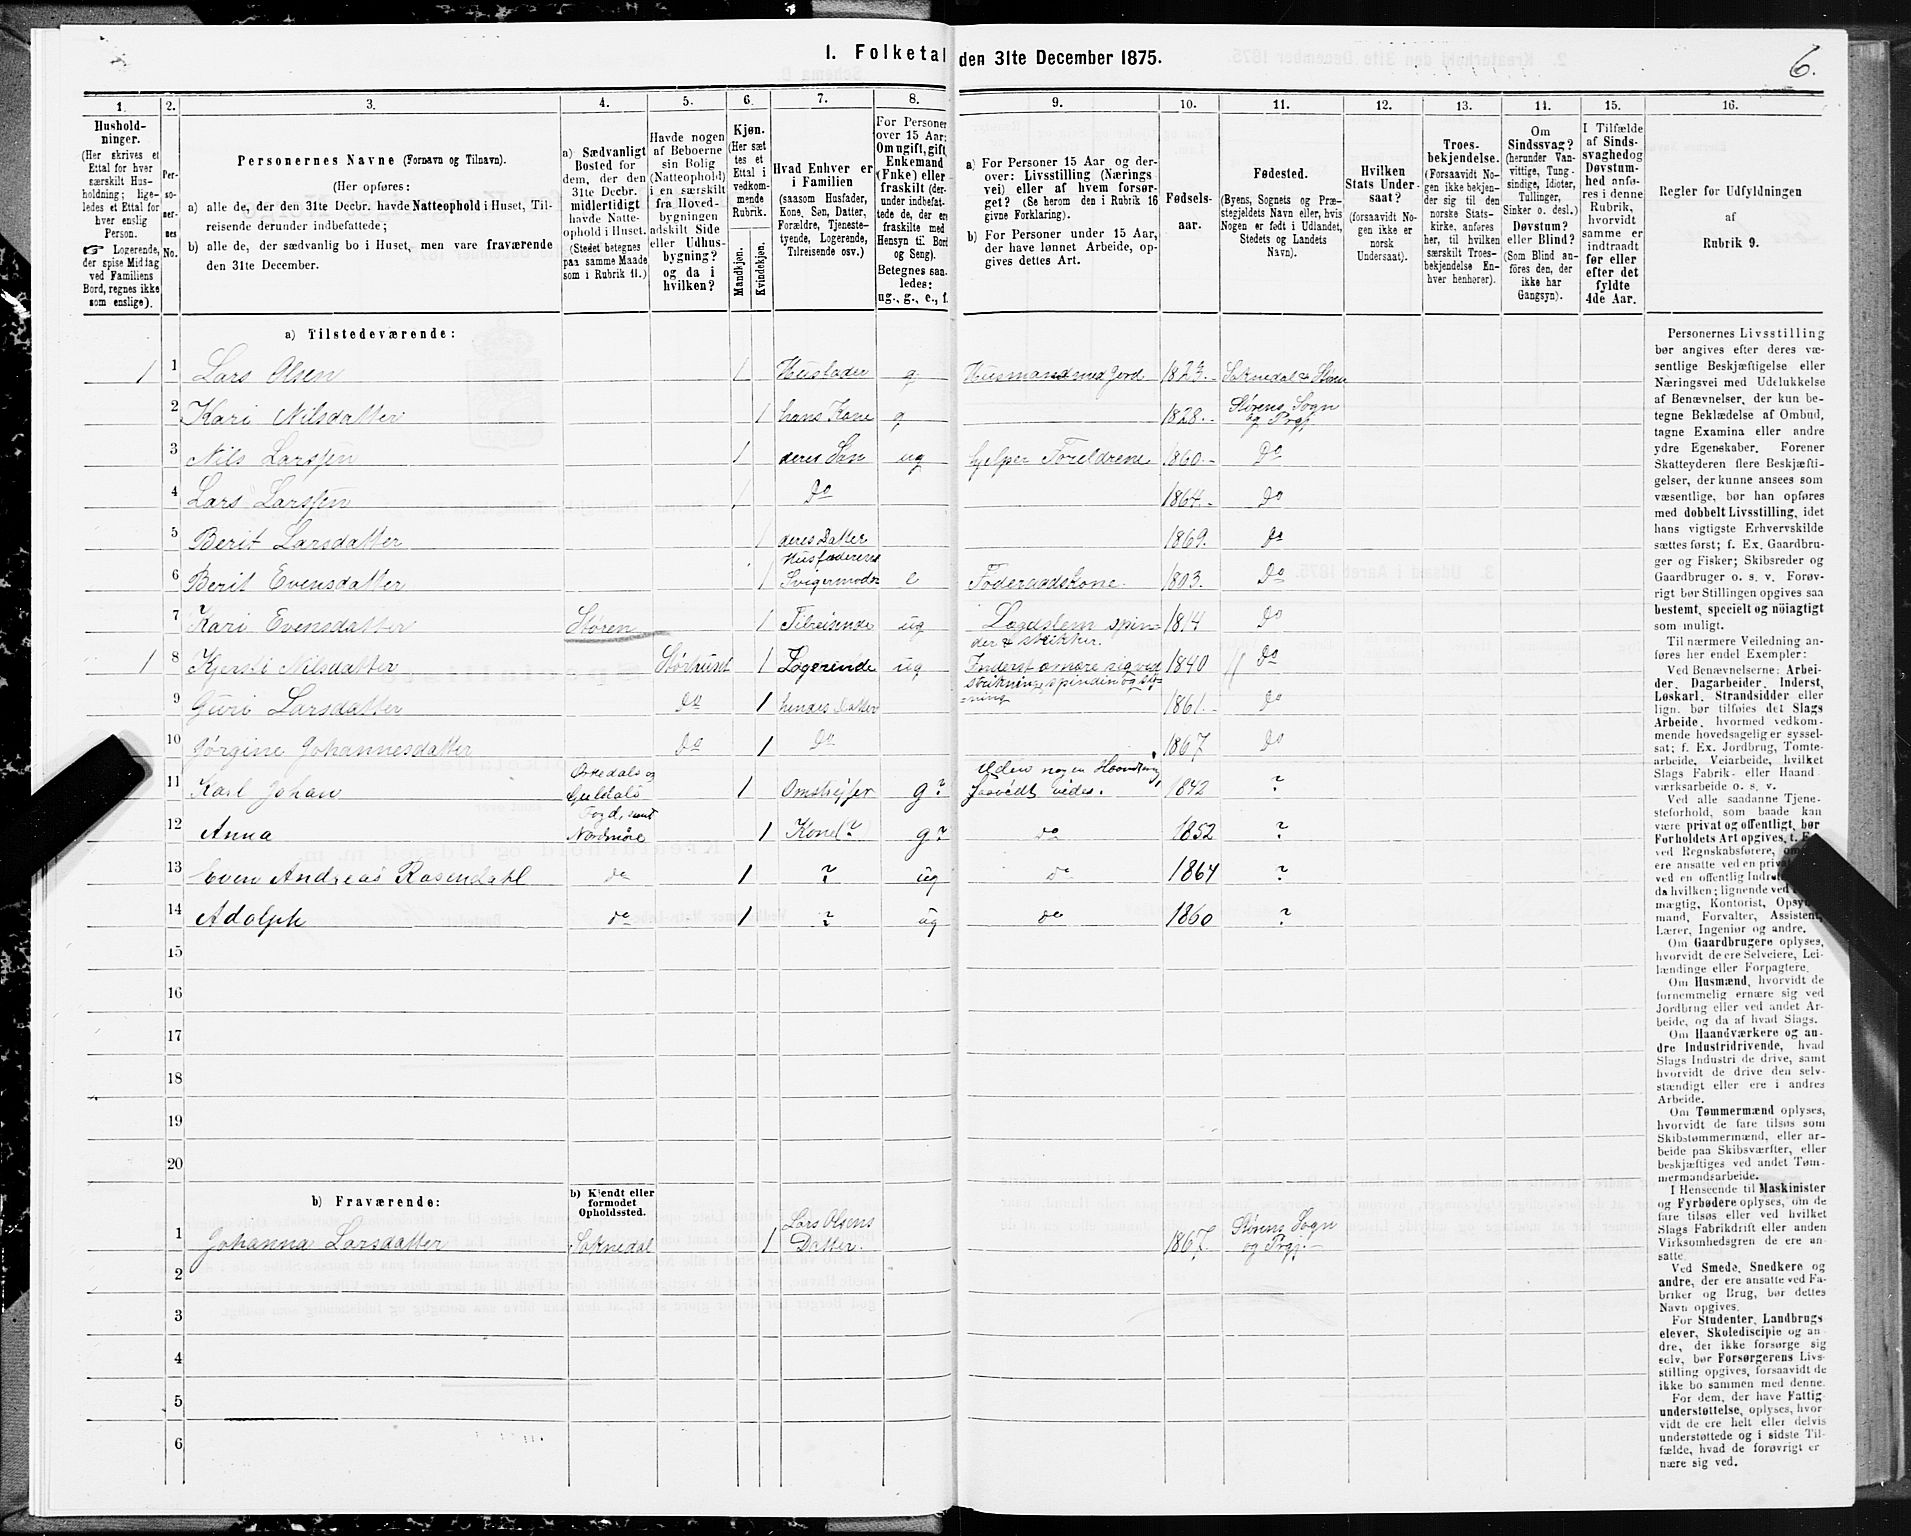 1. Folketal den 31te December 1875.
6.
1. 2. 3. 4. 5. 6. 7. 8. 9. 10. 11. 12. 13. 14. 15. 16.
Hushold-
ninger.
(Her skrives et
Ettal for hver
særskilt Hus-
holdning; lige-
ledes et Ettal for
hver enslig
Person.
☞ Logerende,
der spise Middag
ved Familiens
Bord, regnes ikke
som enslige).
Per-
so-
ner-
nes
No.
Personernes Navne (Fornavn og Tilnavn).
(Her opføres:
a) alle de, der den 31te Decbr. havde Natteophold i Huset, Til-
reisende derunder indbefattede;
b) alle de, der sædvanlig bo i Huset, men vare fraværende
den 31te December.
a) Sædvanligt
Bosted for
dem, der den
31te Decbr.
midlertidigt
havde Natte-
ophold i Huset.
(Stedet betegnes
paa samme Maade
som i Rubrik 11.)
Havde nogen
af Beboerne
sin Bolig
(Natteophold)
i en særskilt
fra Hoved-
bygningen
adskilt Side
eller Udhus-
bygning?
og da i
hvilken?
Kjøn.
(Her sæt
tes et
Ettal i
vedkom-
mende
Rubrik.
Mandkjøn.
Kvindekjøn.
Hvad Enhver er
i Familien
(saasom Husfader,
Kone, Søn, Datter,
Forældre, Tjeneste-
tyende, Logerende,
Tilreisende osv.)
For Personer
over 15 Aar:
Om ugift, gift,
Enkemand
(Enke) eller
fraskilt (der-
under indbefat-
tede de, der ere
fraskilte med
Hensyn til Bord
og Seng).
Betegnes saa-
ledes:
ug., g., e., f.
a) For Personer 15 Aar og der-
over: Livsstilling (Nærings
vei) eller af hvem forsør-
get? (Se herom den i Rubrik 16
givne Forklaring).
b) For Personer under 15 Aar,
der have lønnet Arbeide, op-
gives dettes Art.
Fødsels-
aar.
Fødested.
(Byens, Sognets og Præ-
stegjeldets Navn eller, hvis
Nogen er født i Udlandet,
Stedets og Landets
Navn).
Hvilken
Stats Under-
saat?
(forsaavidt No-
gen ikke er
norsk
Undersaat).
Troes-
bekjendelse.
(Forsaavidt No-
gen ikke bekjen-
der sig til den
norske Stats-
kirke, anføres
her, til hvilken
særskilt Troes-
bekjendelse En-
hver henhører).
Om
Sindssvag?
(herunder Van-
vittige, Tung-
sindige, Idioter,
Tullinger,
Sinker o. desl.)
Døvstum?
eller Blind?
(Som Blind an-
føres den, der
ikke har
Gangsyn).
I Tilfælde
af Sinds-
svaghed og
Døvstum-
hed anfø-
res i denne
Rubrik,
hvorvidt
samme er
indtraadt
før eller
efter det
fyldte
4de Aar.
Regler for Udfyldningen
af
Rubrik 9.
a) Tilstedeværende:
1 1 Lars Olsen 1 Husfader g Husmand med Jord 1823.- Soknedal & Støren
2 Kari Nilsdatter 1 hans Kone g 1828.- Størens Sogn og Prgj.
3 Nils Larssen 1 deres Søn ug hjelper Foreldrene 1860.- Do
4 Lars Larssen 1 do 1864.- do
5 Berit Larsdatter 1 deres Datter 1869. do
6 Berit Evensdatter 1 Husfaderens Svigermoder e Føderaadskone. 1803. Do
7 Kari Evensdatter Støren 1 Tilreisende ug Lægdslem spin-
der & strikker. 1814 do
1 8 Kjersti Nilsdatter Størhuset 1 Logerende ug Inderst ernære sig ved
strikning, spinding og sy-
ning 1840 do
9 Guri Larsdatter do 1 hendes Datter 1861.- do
10 Jørgine Johannesdatter do 1 Do 1867 do
11 Karl Johan Orkedals og Guldals 1 Omstreifer g? Uden nogen Haandtering
saavidt vides. 1842 ?
12 Anna Fogd, samt Nordmøre 1 Kone(?) g? do 1852 ?
13 Even Andreas Rosendahl do 1 ? ug do 1864 ?
14 Adolph do 1 ? ug do 1860 ?
15
16
17
18
19
20
b) Fraværende:
b) Kjendt eller
formodet
Opholdssted.
1 Johanna Larsdatter Soknedal 1 Lars Olsens Datter. 1867. Størens Sogn og Prgj.-
2
3
4
5
6
Personernes Livsstilling
bør angives efter deres væ-
sentlige Beskjæftigelse eller
Næringsvei med Udelukkelse
af Benævnelser, der kun be-
tegne Beklædelse af Ombud,
tagne Examina eller andre
ydre Egenskaber. Forener
Skatteyderen flere Beskjæfti-
gelser, der kunne ansees som
væsentlige, bør han opføres
med dobbelt Livsstilling, idet
hans vigtigste Erhvervskilde
sættes først; f. Ex. Gaardbru-
ger og Fisker; Skibsreder og
Gaardbruger o. s. v. Forøv-
rigt bør Stillingen opgives saa
bestemt, specielt og nøiagtigt
som muligt.
Til nærmere Veiledning an-
føres her endel Exempler:
Ved Benævnelserne: Arbei-
der, Dagarbeider, Inderst,
Løskarl, Strandsidder eller
lign. bør tilføies det Slags
Arbeide, hvormed vedkom-
mende hovedsagelig er syssel-
sat; f. Ex. Jordbrug, Tomte-
arbeide, Veiarbeide, hvilket
Slags Fabrik- eller Haand
værksarbeide o. s. v.
Ved alle saadanne Tjene-
steforhold, som baade kan
være privat og offentlig, bør
Forholdets Art opgives, t. Ex.
ved Regnskabsførere,
ere ansatte ved en privat
ved en offentlig
da hvilken; lignende ved
mægtig, Kontorist,
mand, Forvalter, Assistent,
Lærer, Ingeniør og andre.
Om Gaardbrugere oplyses,
hvorvidt de ere Selveiere, Lei-
lændinge eller Forpagtere.
Om Husmænd, hvorvidt de
fornemmelig ernære sig ved
Jordbrug eller ved andet Ar-
beide, og da af hvad Slags.
Om Haandværkere og an-
dre Industridrivende, hvad
Slags Industri de drive, samt
hvorvidt de drive den selv-
stændigt eller ere i andres
Arbeide.
Om Tømmermænd oplyses,
hvorvidt de fare tilsøs som
Skibstømmermænd, eller ar-
beide paa Skibsværfter, eller
beskjæftiges ved andet Tøm-
mermandsarbeide.
I Henseende til Maskinister
og Fyrbødere oplyses, om de
fare tilsøs eller ved hvilket
Slags Fabrikdrift eller anden
Virksomhedsgren de ere an-
satte.
Ved Smede, Snedkere og
andre, der ere ansatte ved Fa-
briker og Brug, bør dettes
Navn opgives.
For Studenter, Landbrugs
elever, Skoledisciple og an-
dre, der ikke forsørge sig
selv, bør Forsørgerens Livs-
stilling opgives, forsaavidt de
ikke bo sammen med denne.
For dem, der have Fattig-
understøttelse, oplyses, hvor-
vidt de ere helt eller delvis
understøttede og i sidste Til-
fælde, hvad de forøvrigt er
nære sig ved.